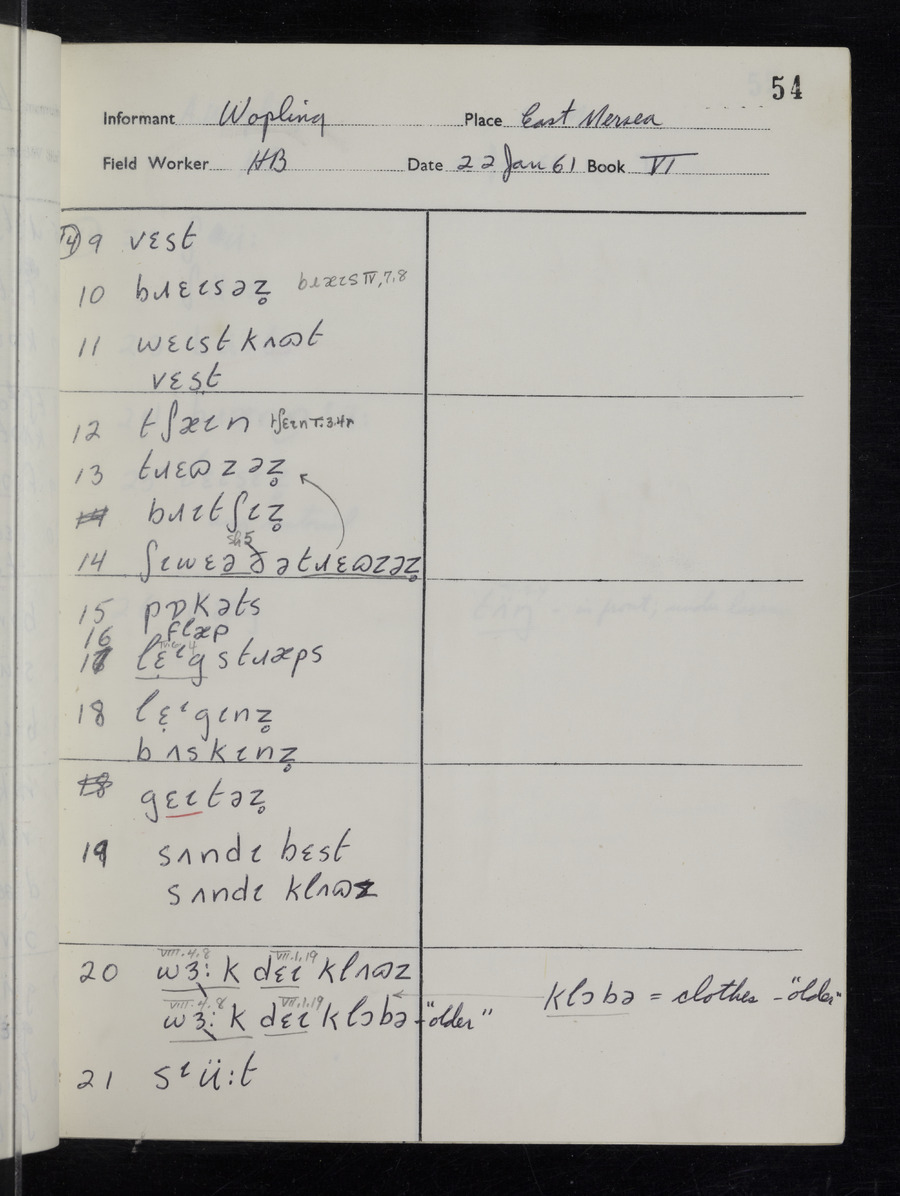 54
Informant Wopling Place East Mersea
Field Worker HB Date 22 Jan 61 Book VI
9 vɛst
10 bɹɛɪsəz̥ bɹæɪs IV,7,8
11 wɛɪst kʌɷt
vɛṣt
12 tʃæɪn tʃɛɪn
13 tɹɛɷzəz̥
bɹɪtʃɪz̥
14 ʃɪwɛə ðətɹɛɷzəz̥
15 pɒkəts
16 flæp
17 lɛ̣ɪg stɹæps
18 lɛ̣ɪgɪnz̥
bʌskɪnz̥
18 gɛɪtəz̥
19 sʌndɪ bɛst
sʌndɪ klʌɷz
VIII.4.8 VII.1,19
20 wɜ:k dɛɪ klʌɷz
VIII.4.8 VII.1,19
wɜ:k dɛɪ klɔbə - "older" klɔbə = clothes - "older"
21 sɪü:t